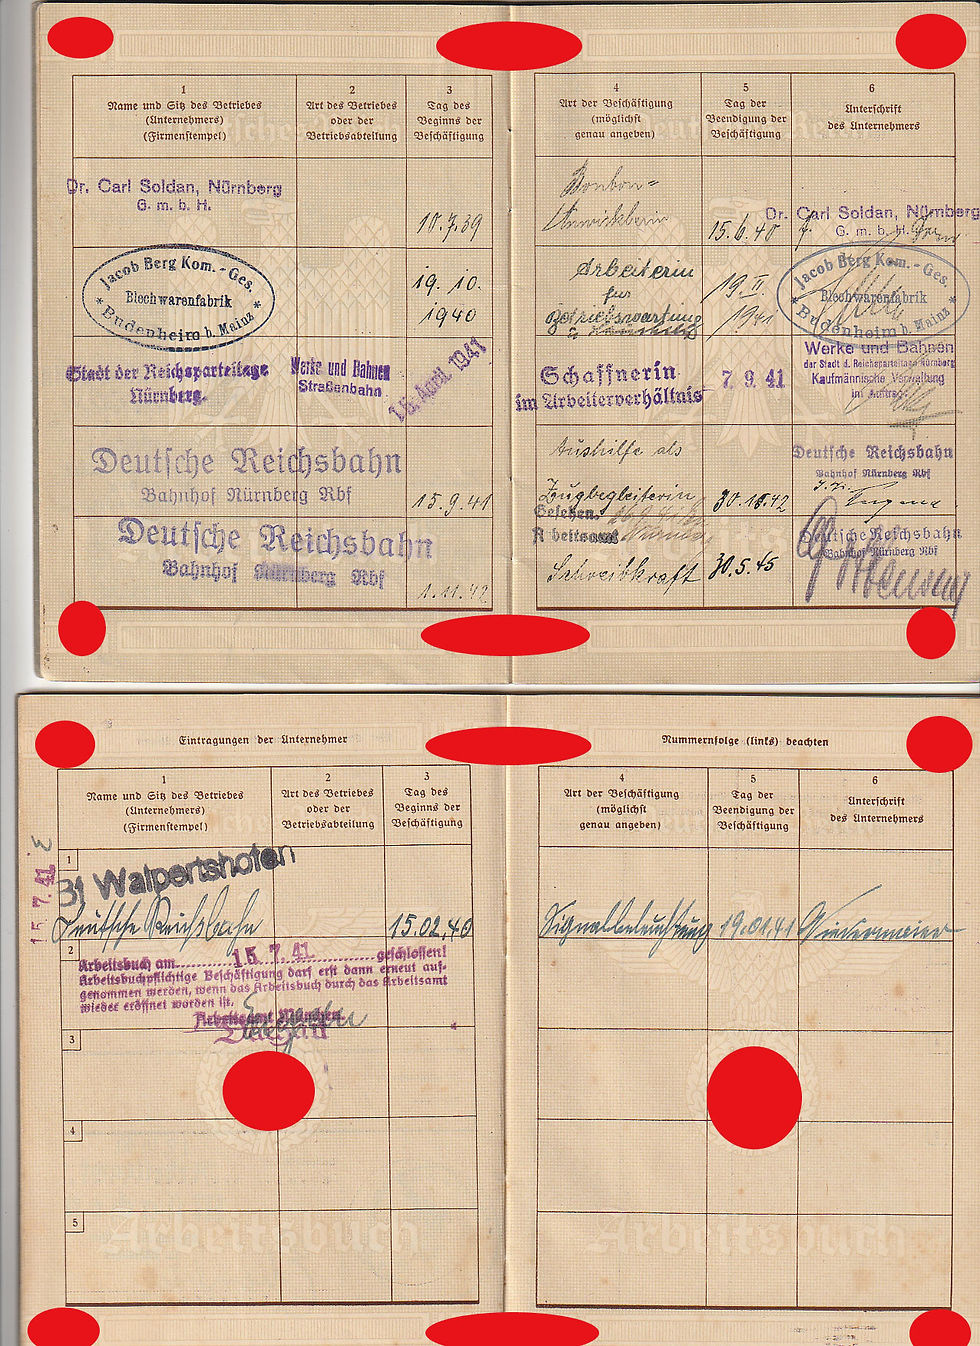 1
Name und Sitz des Betriebes
(Unternehmers)
(Firmenstempel)
2
Art des Betriebes
oder der
Betriebsabteilung
3
Tag des
Beginns der
Beschäftigung
4
Art der Beschäftigung
(möglichst
genau angeben)
5
Tag der
Beendigung der
Beschäftigung
6
Unterschrift
des Unternehmers
Dr. Carl Soldan, Nürnberg
G. m. b. H.
10.7.39
Bonbon=
15.6.40
Dr. Carl Soldan, Nürnberg
G. m. b. H.
Jacob Berg Kom.-Ges.
Blechwarenfabrik
* Budenheim b. Mainz *
19. 10.
1940
Arbeiterin
für
19. II.
1941
Jacob Berg Kom.-Ges.
Blechwarenfabrik
* Budenheim b. Mainz *
Stadt der Reichsparteitage
Nürnberg
Werke und Bahnen
Straßenbahn
16. April 1941
Schaffnerin
im Arbeiterverhältnis
7. 9. 41
Werke und Bahnen
der Stadt d. Reichsparteitage Nürnberg
Kaufmännische Verwaltung
im Auftrag
Deutsche Reichsbahn
Bahnhof Nürnberg Rbf
15.9.41
Aushilfe als
Zugbegleiterin
30.10.42
Deutsche Reichsbahn
Bahnhof Nürnberg Rbf
Gesehen.
Arbeitsamt
Deutsche Reichsbahn
Bahnhof Nürnberg Rbf
1.11.42
Schreibkraft
30.5.45
Deutsche Reichsbahn
Bahnhof Nürnberg Rbf
Eintragungen der Unternehmer
Nummernfolge (links) beachten
1
Name und Sitz des Betriebes
(Unternehmers)
(Firmenstempel)
2
Art des Betriebes
oder der
Betriebsabteilung
3
Tag des
Beginns der
Beschäftigung
4
Art der Beschäftigung
(möglichst
genau angeben)
5
Tag der
Beendigung der
Beschäftigung
6
Unterschrift
des Unternehmers
15. 7. 41
1
Bf Walpertshofen
Deutsche Reichsbahn
15.02.40
Signalbeleuchtung
19.01.41
Niedermeier
2
Arbeitsbuch am 15. 7. 41 geschlossen!
Arbeitsbuchpflichtige Beschäftigung darf erst dann erneut auf-
genommen werden, wenn das Arbeitsbuch durch das Arbeitsamt
wieder eröffnet worden ist.
Arbeitsamt München
Dachau
3
4
5
Arbeitsbuch
Arbeitsbuch